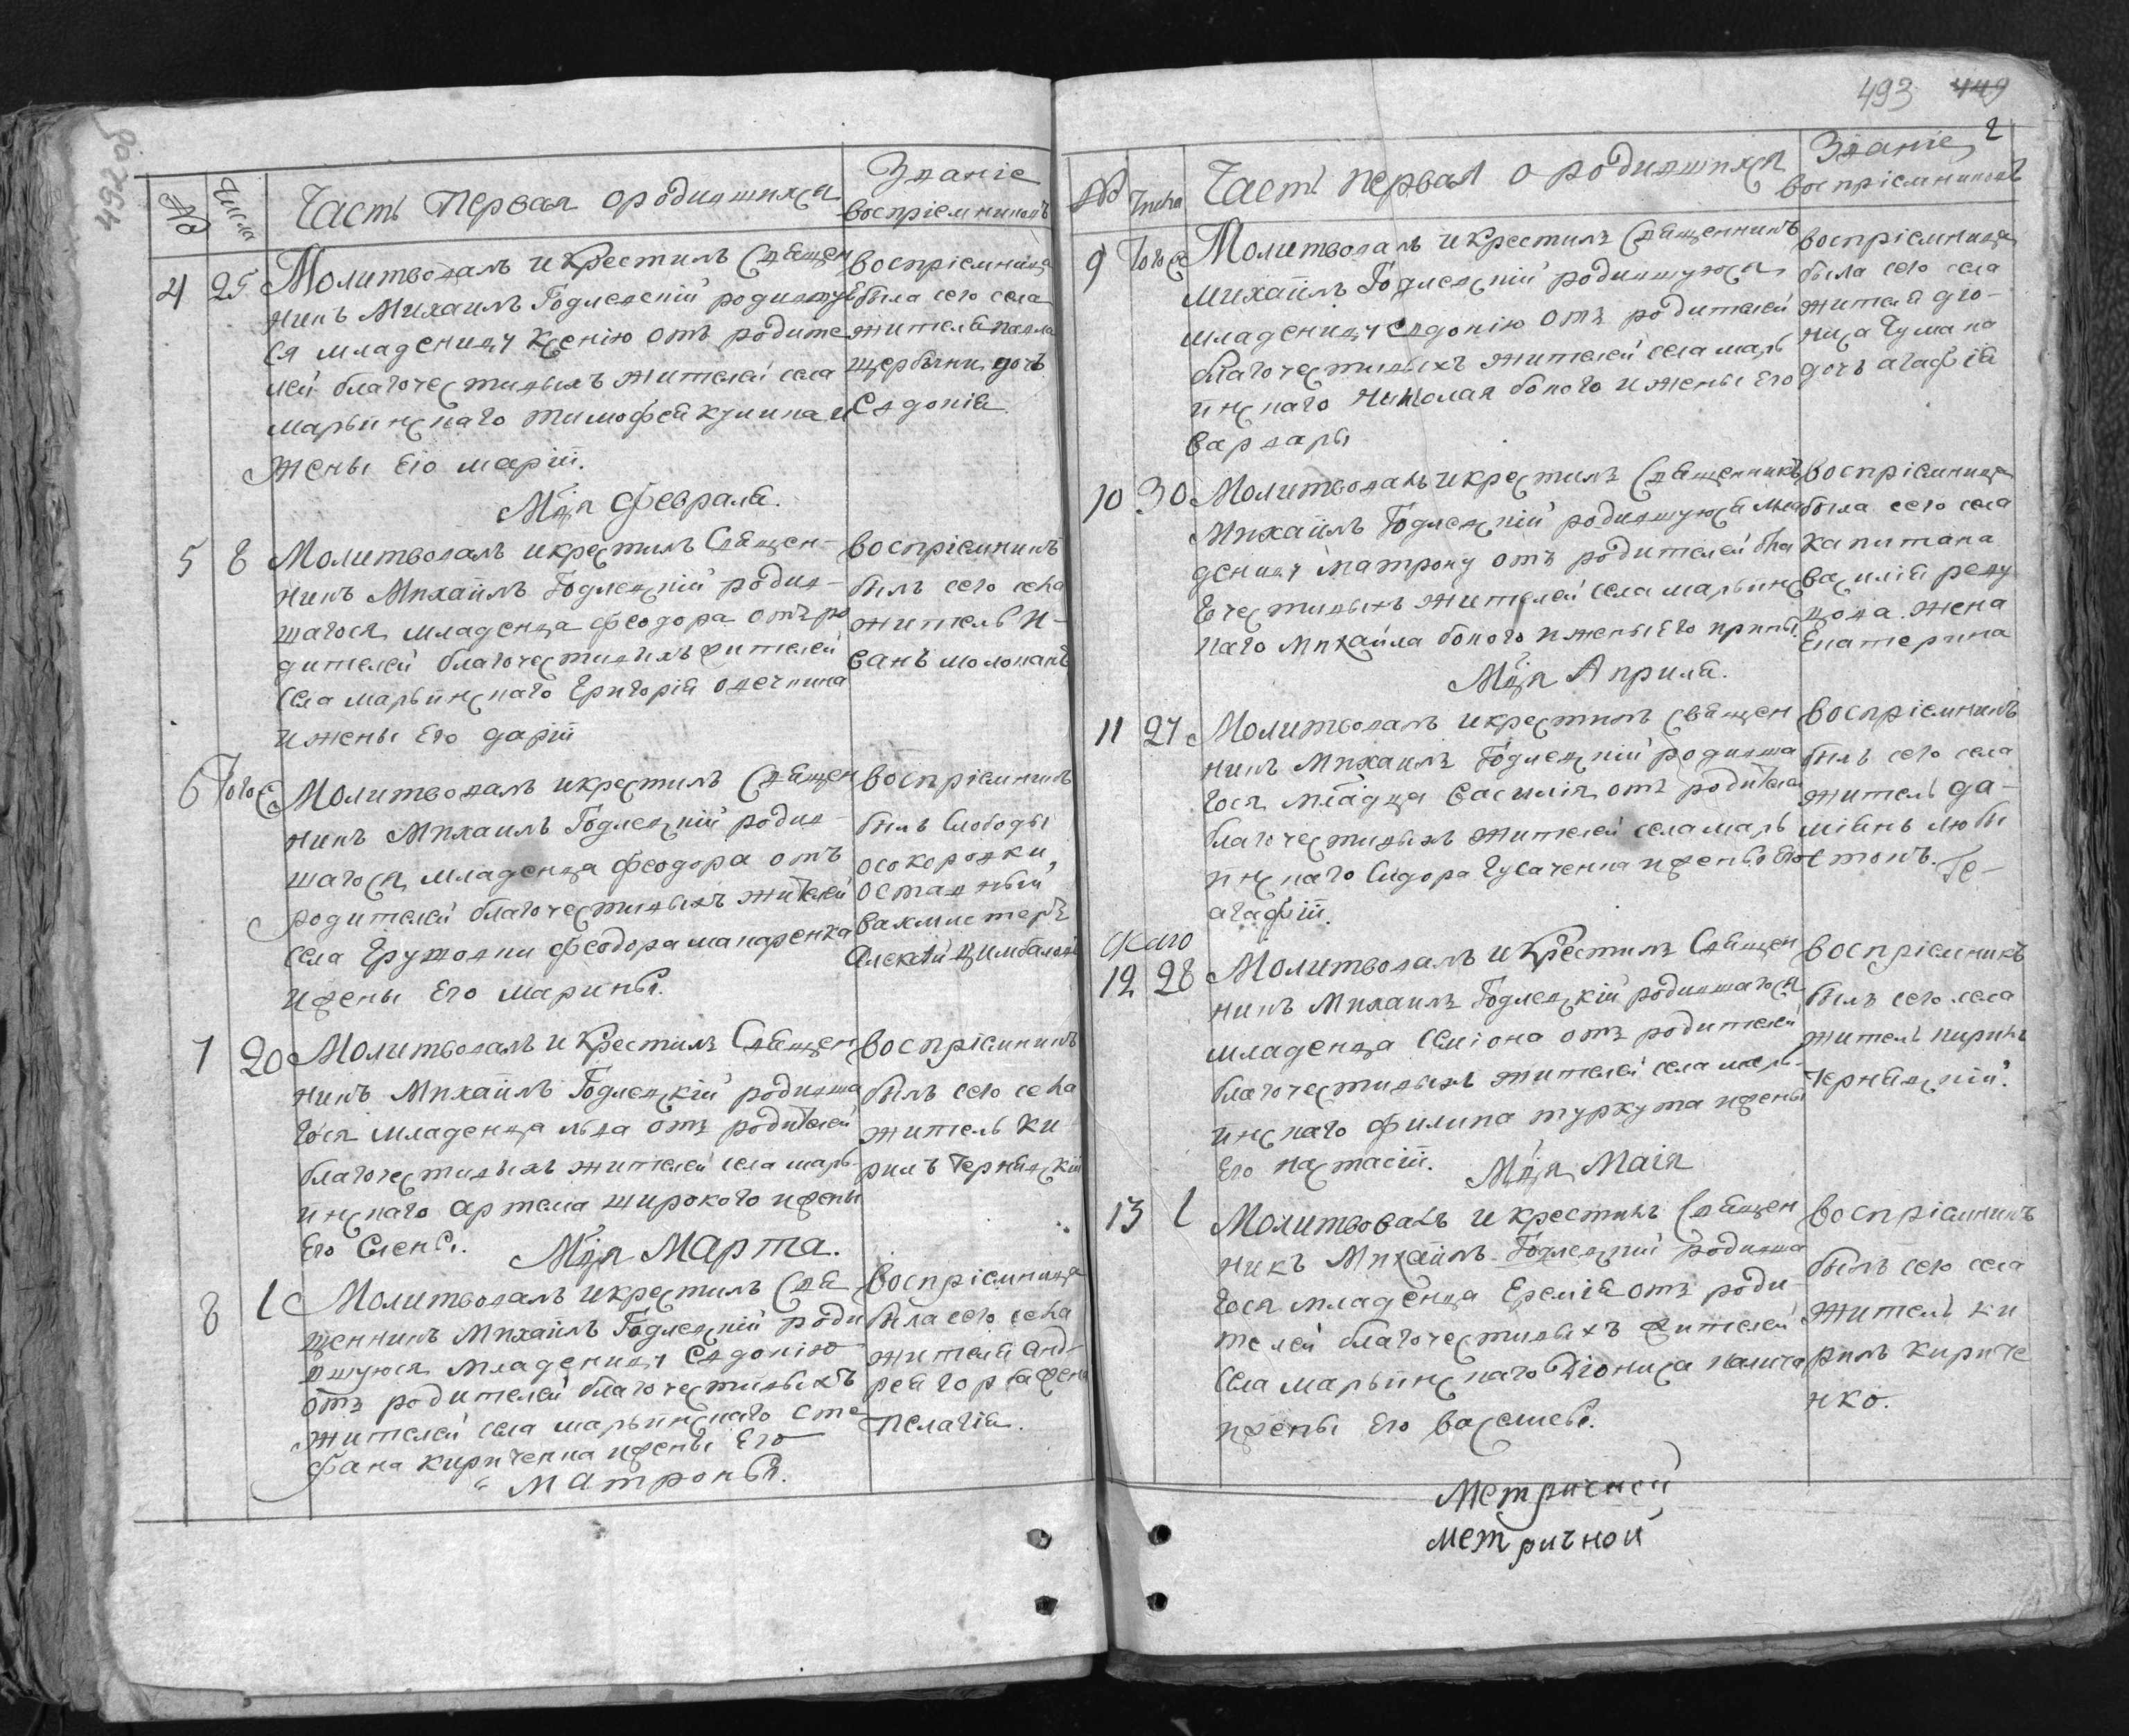 492 об
№ Числа Часть Первая о родившихся Званіе
воспріемниковъ
4 25 Молитвовалъ и Крестилъ Священ
никъ Михаилъ Годлевскій родившую
ся младеницу Ксенію отъ родите
лей благочестивыхъ жителей села
марьинскаго тимофея кулика и
жены его маріи.
воспріемница
была сего села
жителя павла
щербыни дочь
Евдокія
Мца февраля.
5 8 Молитвовалъ и крестилъ Священ-
никъ Михаилъ Годлевскій родив-
шагося младенца феодора отъ ро
дителей благочестивыхъ жителей
села марьинскаго Григорія
и жены его даріи
воспріемникъ
былъ сего села
житель И-
ванъ молоканъ
6 Тогоже Молитвовалъ и крестилъ Священ
никъ Михаилъ Годлевскій родив-
шагося младенца феодора отъ
родителей благочестивыхъ жителей
села Грушовки феодора макаренка
и жены его марины.
воспріемникъ
былъ Слободы
осокоровки
оставный
вахмистеръ
Алексѣй Цимбалов
7 20 Молитвовалъ и Крестилъ Священ
никъ Михаилъ Годлевскій родивша
гося младенца льва отъ родителей
благочестивыхъ жителей села марь-
инскаго артема широкого и жены
его Елены.
воспріемникъ
былъ сего села
житель Ки
рилъ Чернявскій
Мца Марта.
8 1 Молитвовалъ и крестилъ Свя
щенникъ Михаилъ Годлевскій роди
вшуюся младеницу Евдокію
отъ родителей благочестивыхъ
жителей села марьинскаго сте
фана кириченка и жены его
матроны.
воспріемница
была сего села
жителя Анд-
рея жена
Пелагія.
493 449
2
№ Числа Часть первая о родившихся Званіе
воспріемниковъ
9 Тогоже Молитвовалъ и Крестилъ Священникъ
Михаилъ Годлевскій родившуюся
младеницу евдокію отъ родителей
благочестивыхъ жителей села марь
инскаго Николая бокого и жены его
варвары
воспріемница
была сего села
жителя діо-
ниса Чумака
дочь агафія
10 30 Молитвовалъ и крестилъ Священникъ
Михаилъ Годлевскій родившуюся мла
деницу матрону отъ родителей бла
гочестивыхъ жителей села марьинс
каго Михаила бокого и жены его ирины
воспріемница
была сего села
капитана
василія
жена
Екатерина
Мца Априля.
11 27 Молитвовалъ и крестилъ священ
никъ Михаилъ Годлевскій родивша
гося младца василія отъ родителей
благочестивыхъ жителей села марь
инскаго Сидора Гусаченка и жены его
агафіи.
воспріемникъ
былъ сего села
житель да-
міянъ любы
стокъ. Ге-
скаго
12 28 Молитвовалъ и Крестилъ Священ
никъ Михаилъ Годлевскій родившагося
младенца Семіона отъ родителей
благочестивыхъ жителей села марь-
инскаго филипа туркута и жены
его настасіи.
воспріемникъ
былъ сего села
житель кирилъ
чернявскій.
Мца Маія
13 1 Молитвовалъ и крестилъ Священ
никъ Михаилъ Годлевскій родивша
гося младенца Еремія отъ роди-
телей благочестивыхъ жителей
села марьинскаго Діониса
и жены его васелисы.
воспріемникъ
былъ сего села
житель ки
рилъ кириче
нко.
Метричней
метричной